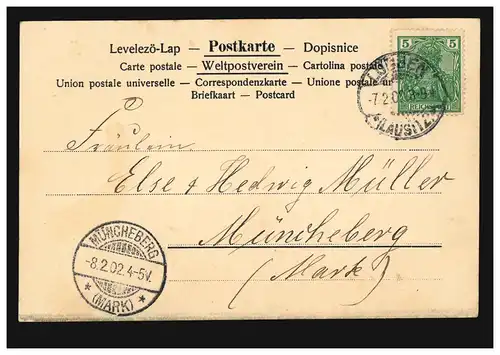 Levelezö-Lap — Postkarte — Dopisnice
Carte postale — Weltpostverein — Cartolina postale
Union postale universelle — Correspondenzkarte — Unione postale
Briefkaart — Postcard
5 5
(LAUSITZ)
Fräulein
Else & Hedwig Müller
Müncheberg
(Mark)
MÜNCHEBERG
-8.2.02.4-5V.
* (MARK) *